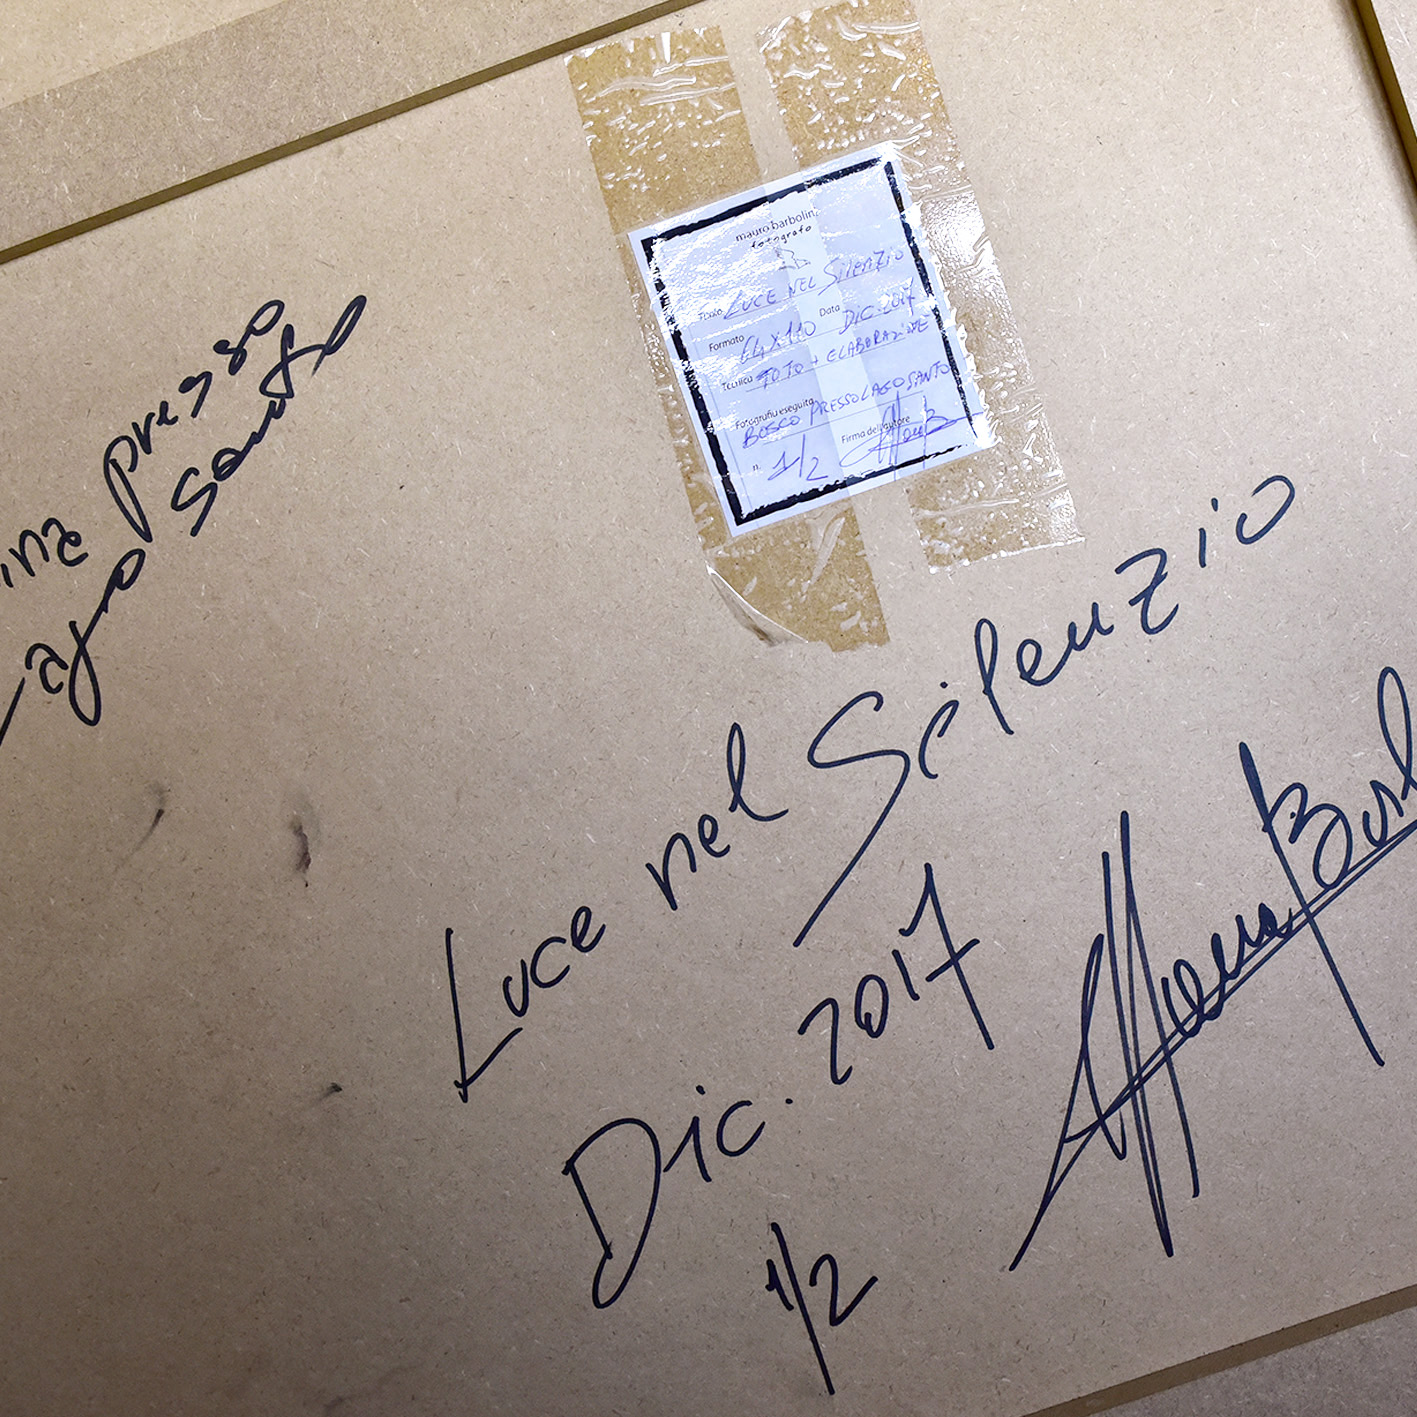 mauro barbolini
fotografo
Titolo LUCE NEL SILENZIO
Formato 64 X 110 Data DIC. 2017
Tecnica FOTO + ELABORAZIONE
Fotografia eseguita
BOSCO PRESSO LAGO SANTO
n. 1/2 Firma dell'autore
presso
Lago Santo
Luce nel Silenzio
Dic. 2017
1/2